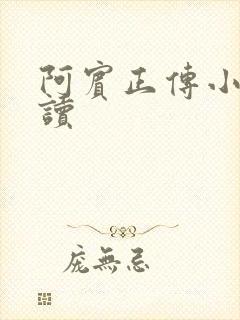 阿賓正傳小
讀
庞無忌